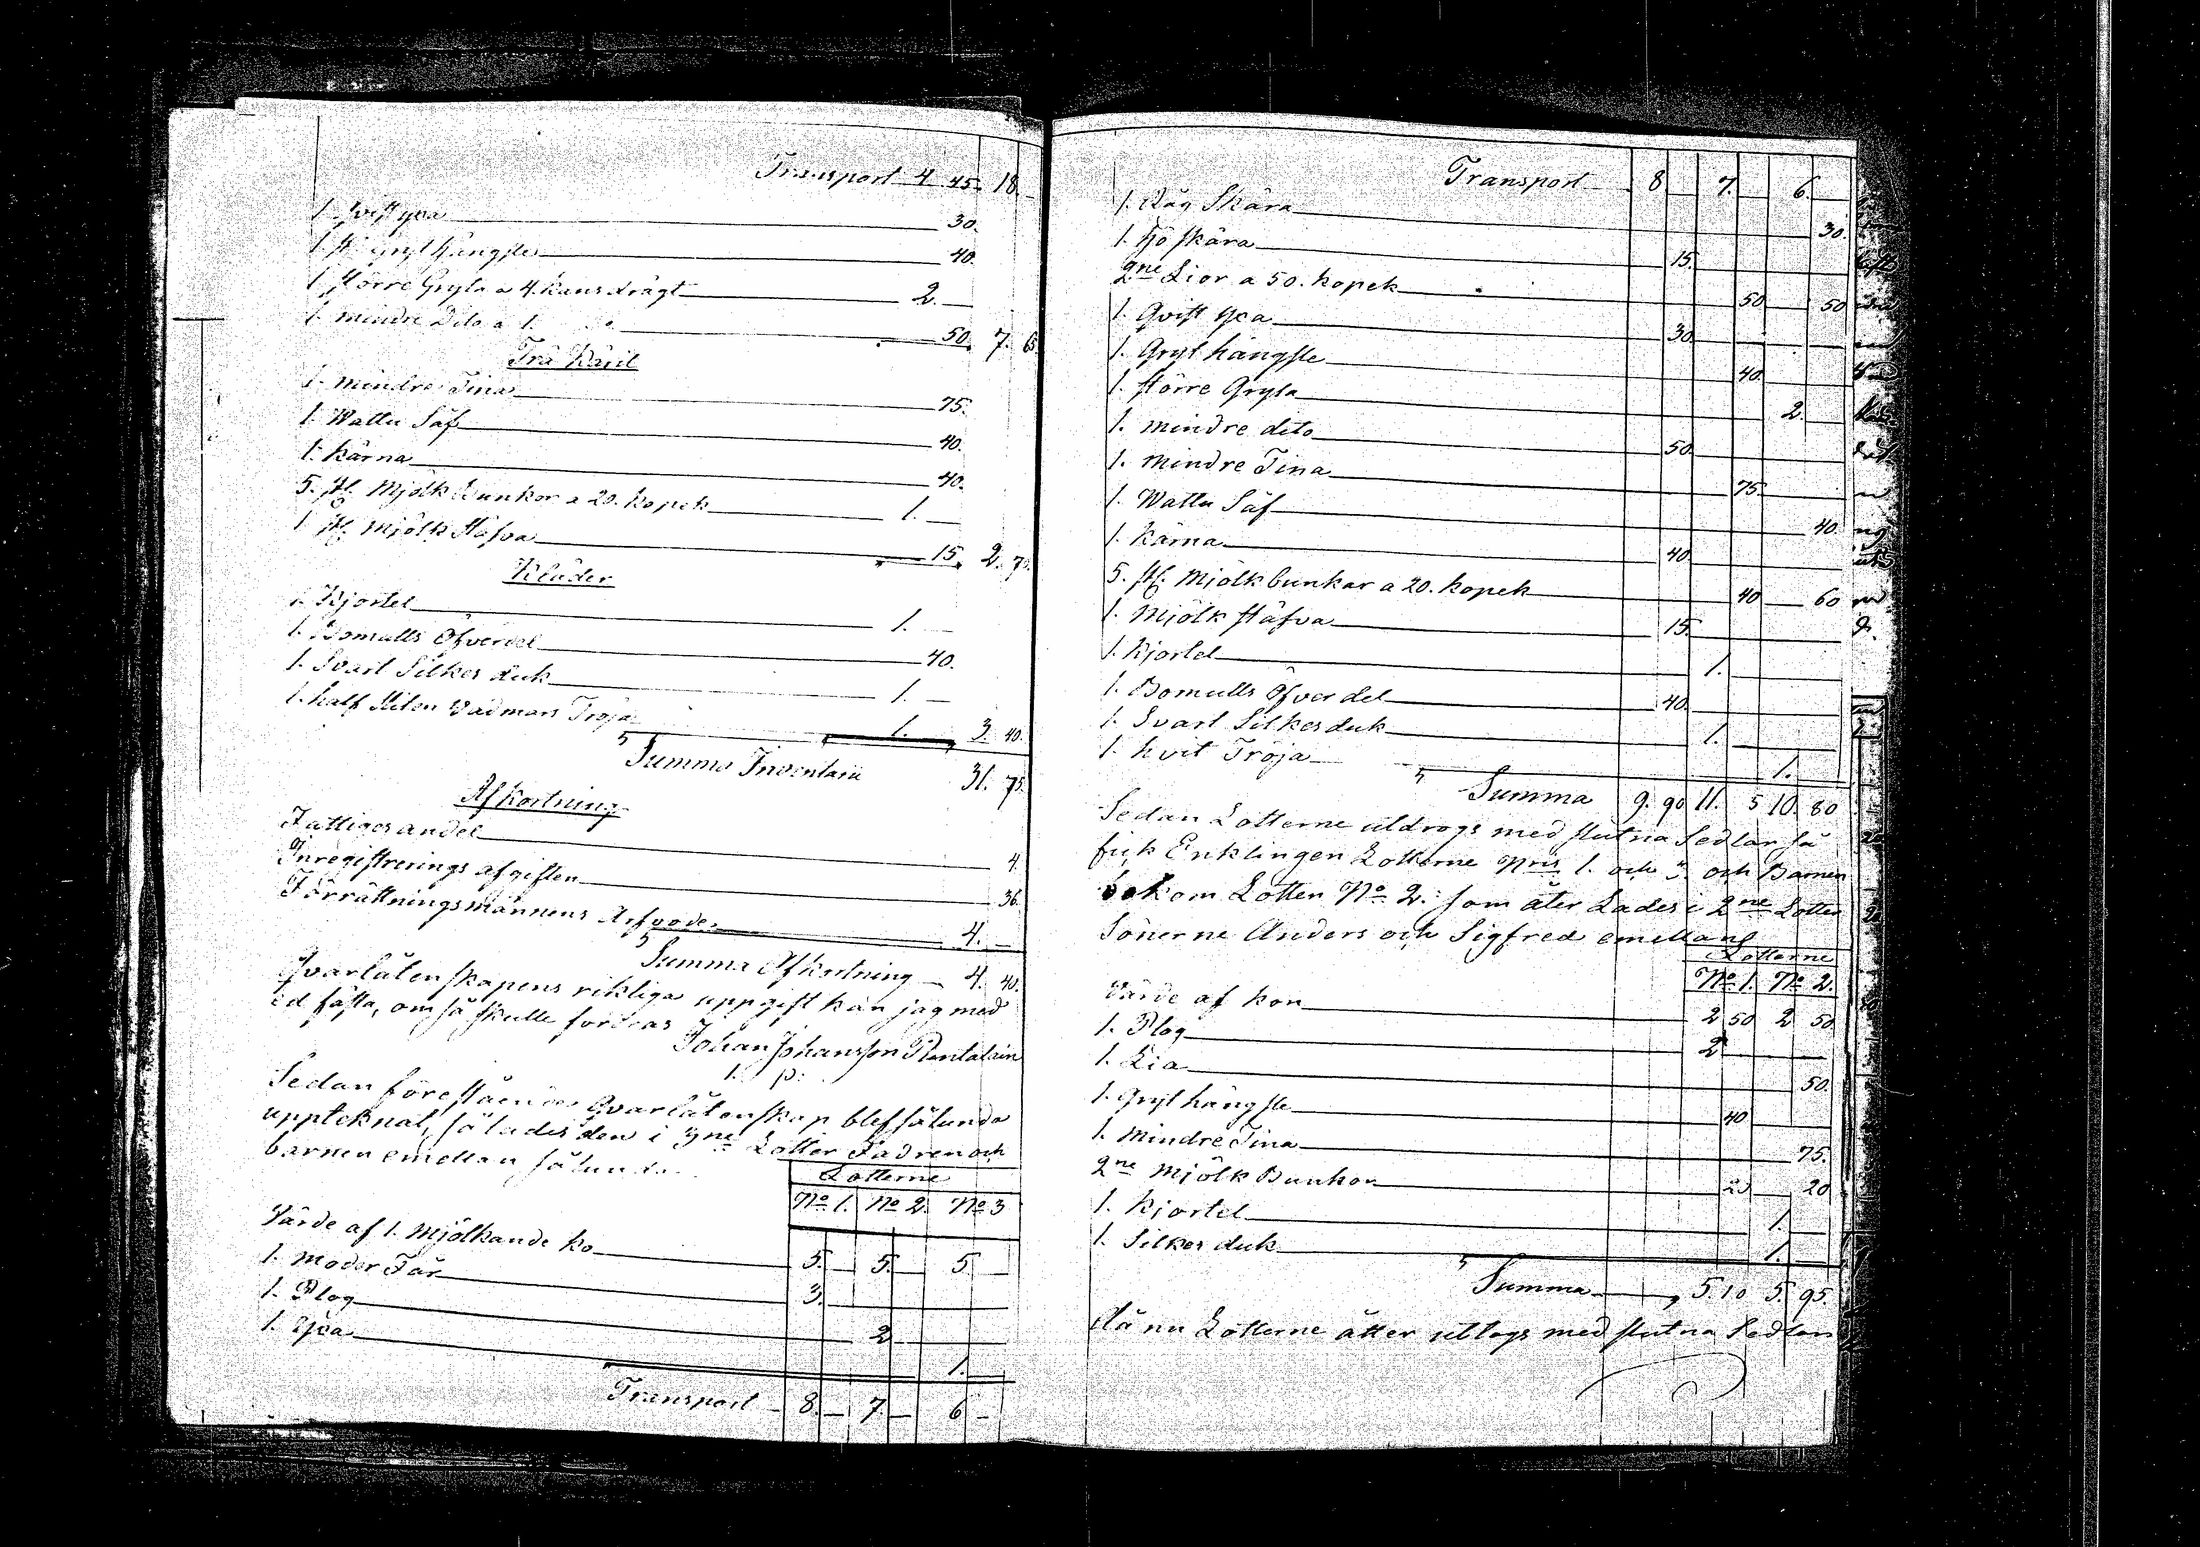 Transport 4 45. 18. —
1. Qvist yxa 30.
1. st. Gryt hängsle 40.
1. större Gryta a 4. kans drägt 2. —
1. mindre Dito a 1. 50. 7. 65.
Trä Käril
1. mindre Tina 75.
1. Wattu Säf 40.
1. Kärna 40.
5. st. Mjölk Bunkor a 20. kopek 1. —
1. st. Mjölk Stäfva 15. 2. 70.
Kläder
1. Kjortel 1. —
1. Bomulls Öfverdel 40.
1. Svart Silkes duk 1. —
1. half sliten Vadmars Tröja 1. 3. 40.
Summa Inventarii 31. 75.
Afkortning
Fattiges andel 4.
Inregistrerings afgiften 36.
Förrättningsmännens Arfvode 4. —
Summa Afkortning 4. 40.
Qvarlåtenskapens riktiga uppgift kan jag med
ed fästa, om så skulle fordras
Johan Johansson Pentalain
Sedan föreståendes Qvarlåtenskap blef sålunda
upptcknat, så lades den i 3ne Lotter Fadren och
barnen emellan sålunda
Lotterne
No 1. No 2. No 3
Värde af 1. Mjölkande ko 5. — 5. — 5 —
1. Moder Får 3. —
1. Plog 2
1. Yxa 1.
Transport 8. — 7. — 6 —
Transport 8 7. 6.
1. Råg Skära 30.
1. Hö skära 15.
2ne Lior a 50. kopek 50 50
1. Qvist yxa 30
1. Gryt hängsle 40.
1. större Gryta 2.
1. mindre dito 50
1. mindre Tina 75
1. Wattu Säf 40.
1. Kärna 40
5. st. Mjölkbunkar a 20. kopek 40 60
1. Mjölk stäfva 15.
1. Kjortel 1.
1. Bomulls Öfver del 40.
1. Svart Silkesduk 1.
1. hvit Tröja 1.
Summa 9. 90 11. 5 10. 80
Sedan Lotterne utdrogs med slutna Sedlar så
fick Enklingen Lotterne Nris 1. och 3. och Barnen
bekom Lotten No 2. som åter Lades i 2ne Lotter
Sönerne Anders och Sigfred emellan
Lotterne
No 1. No 2.
Värde af kon 2 50 2 50
1. Plog 2
1. Lia 50.
1. Gryt hängsle 40
1. Mindre Tina 75.
2ne Mjölk Bunkor 20 20
1. Kjortel 1.
1. Silkes duk 1.
Summa 5. 10 5. 95.
då nu Lotterne åtter uttogs med slutna Sedlar